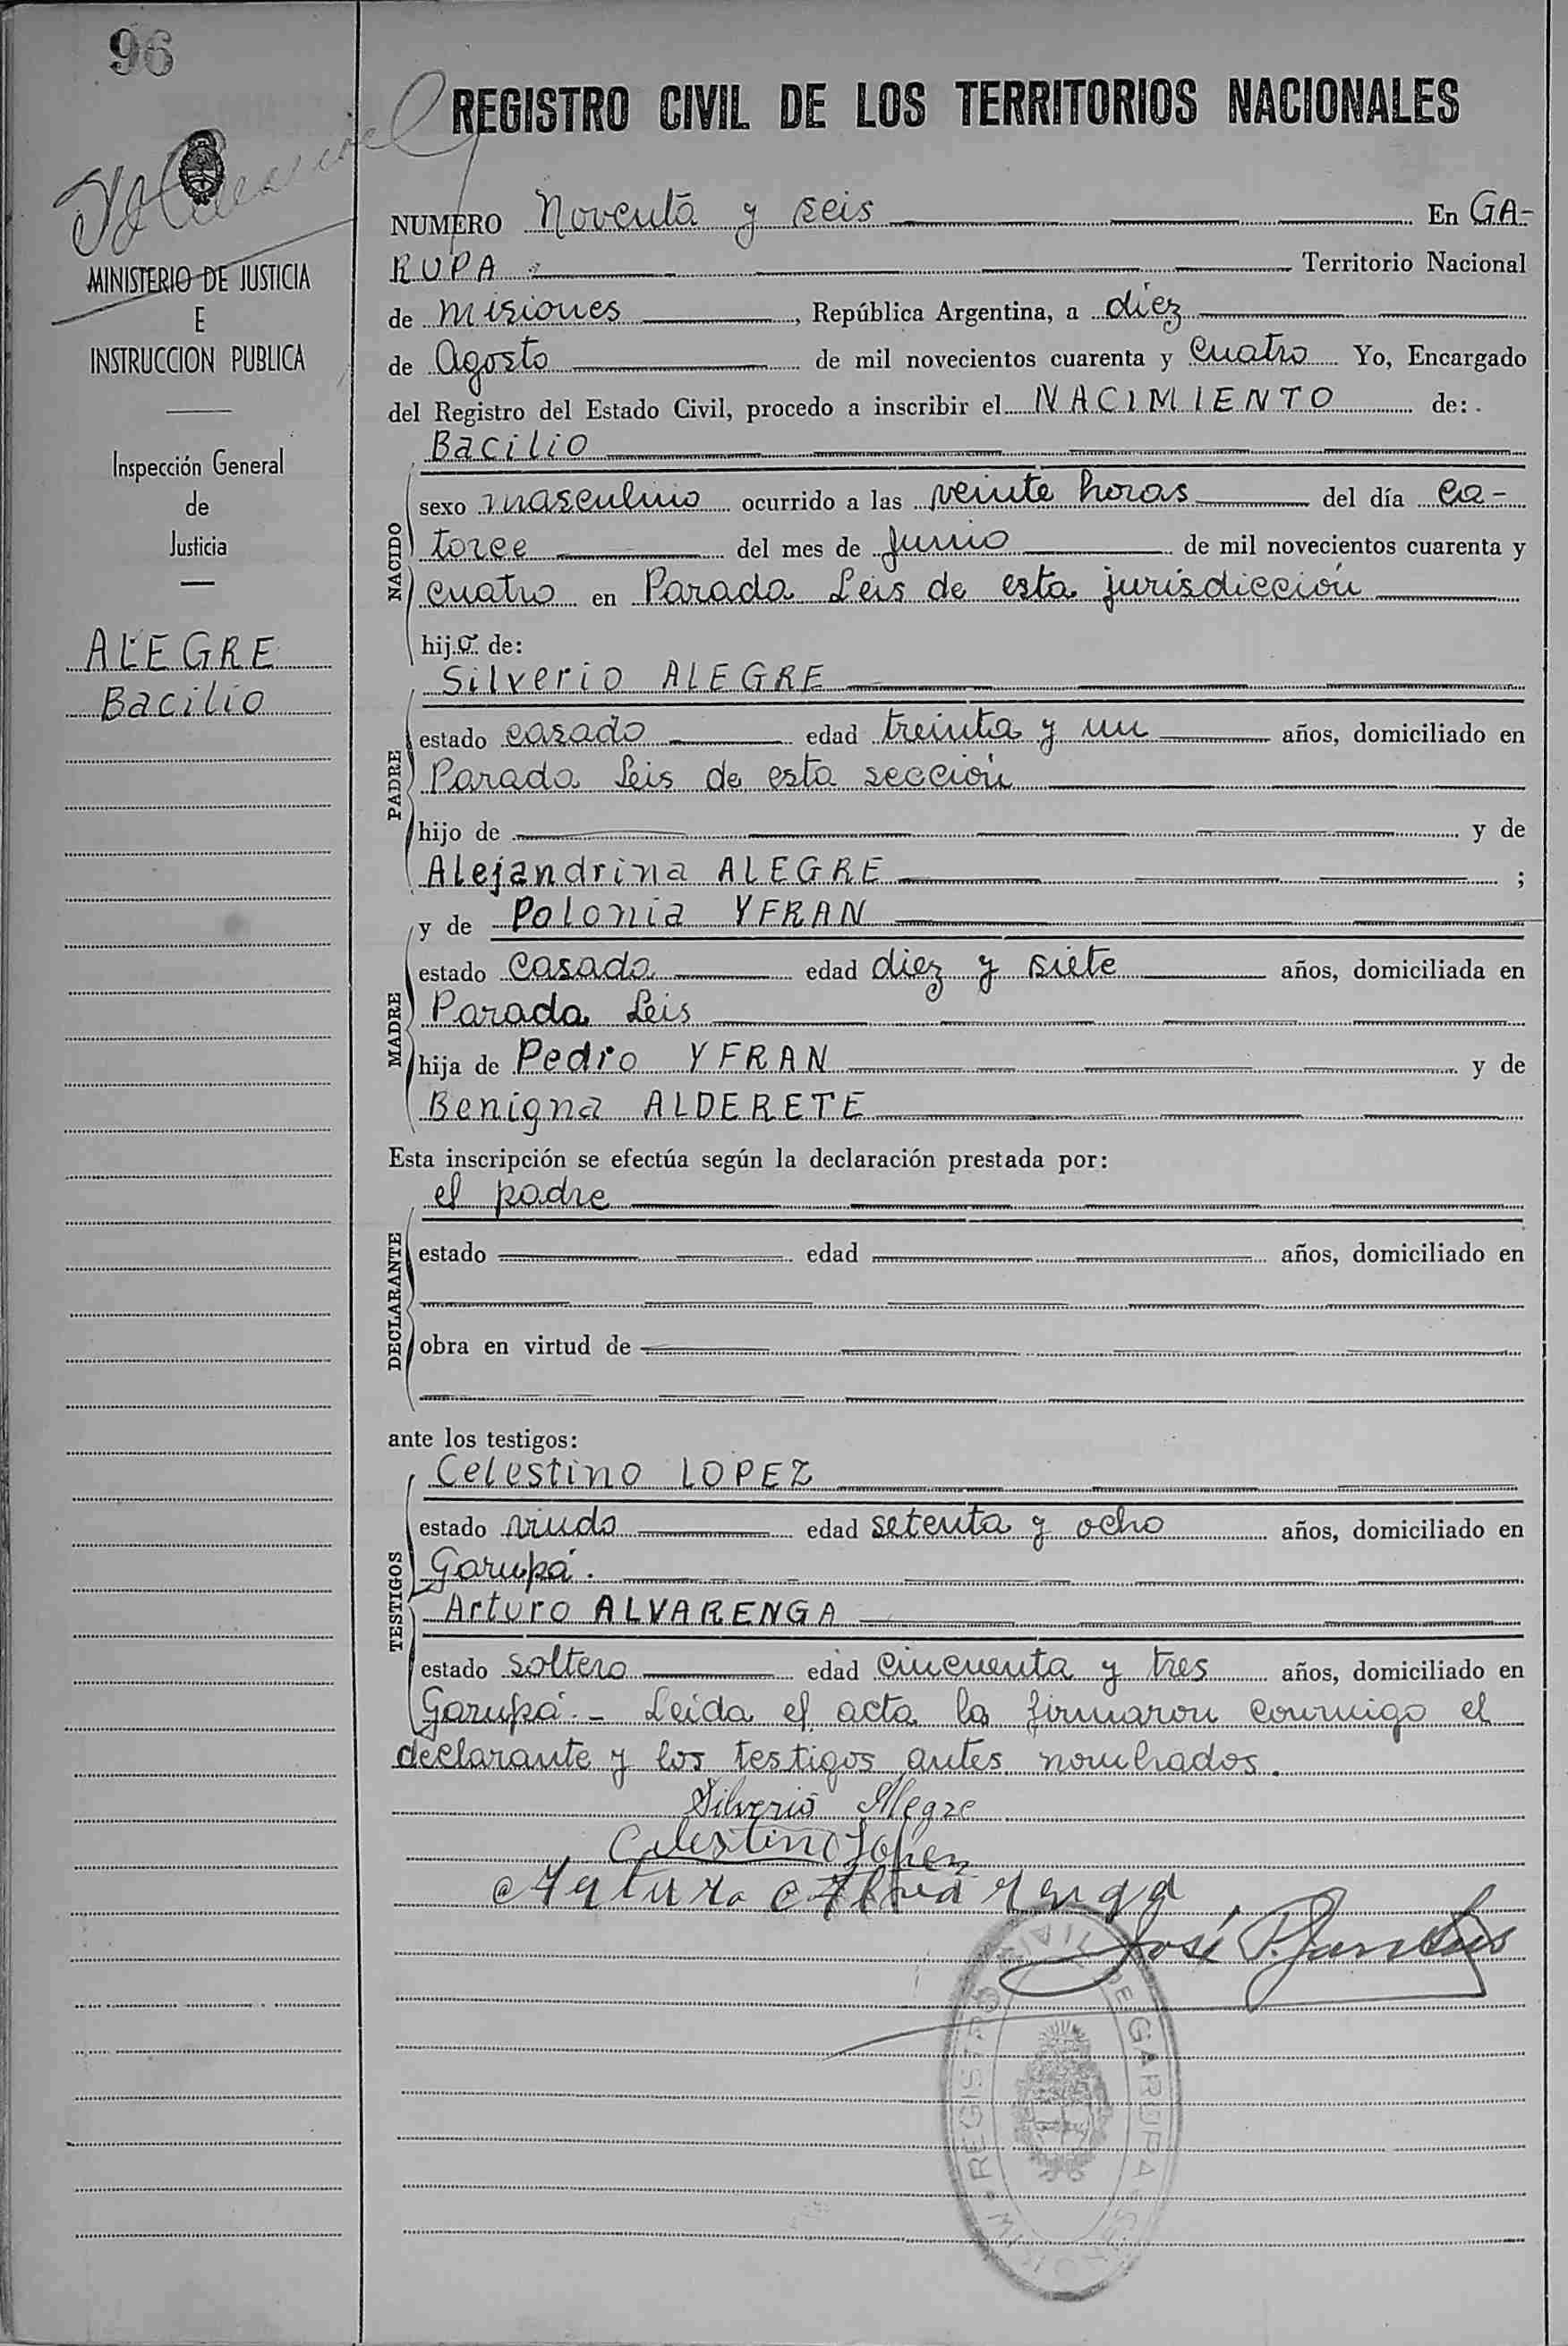 96
REGISTRO CIVIL DE LOS TERRITORIOS NACIONALES
MINISTERIO DE JUSTICIA
E
INSTRUCCION PUBLICA
Inspección General
de
Justicia
ALEGRE
Bacilio
NUMERO Noventa y seis En GA-
RUPA Territorio Nacional
de Misiones, República Argentina, a diez
de Agosto de mil novecientos cuarenta y cuatro Yo, Encargado
del Registro del Estado Civil, procedo a inscribir el NACIMIENTO de:
Bacilio
NACIDO
sexo masculino ocurrido a las veinte horas del día ca-
torce del mes de Junio de mil novecientos cuarenta y
cuatro en Parada Leis de esta jurisdicción
hijo de:
Silverio ALEGRE
PADRE
estado casado edad treinta y un años, domiciliado en
Parada Leis de esta sección
hijo de y de
Alejandrina ALEGRE ;
y de Polonia YFRAN
MADRE
estado casada edad diez y siete años, domiciliada en
Parada Leis
hija de Pedro YFRAN y de
Benigna ALDERETE
Esta inscripción se efectúa según la declaración prestada por:
el padre
DECLARANTE
estado edad años, domiciliado en
obra en virtud de
ante los testigos:
Celestino LOPEZ
TESTIGOS
estado viudo edad setenta y ocho años, domiciliado en
Garupá.
Arturo ALVARENGA
estado soltero edad cincuenta y tres años, domiciliado en
Garupá.- Leida el acta la firmaron conmigo el
declarante y los testigos antes nombrados.
Silverio Alegre
Celestino Lopez
Arturo Alvarenga
José P.
REGISTRO CIVIL DE GARUPA